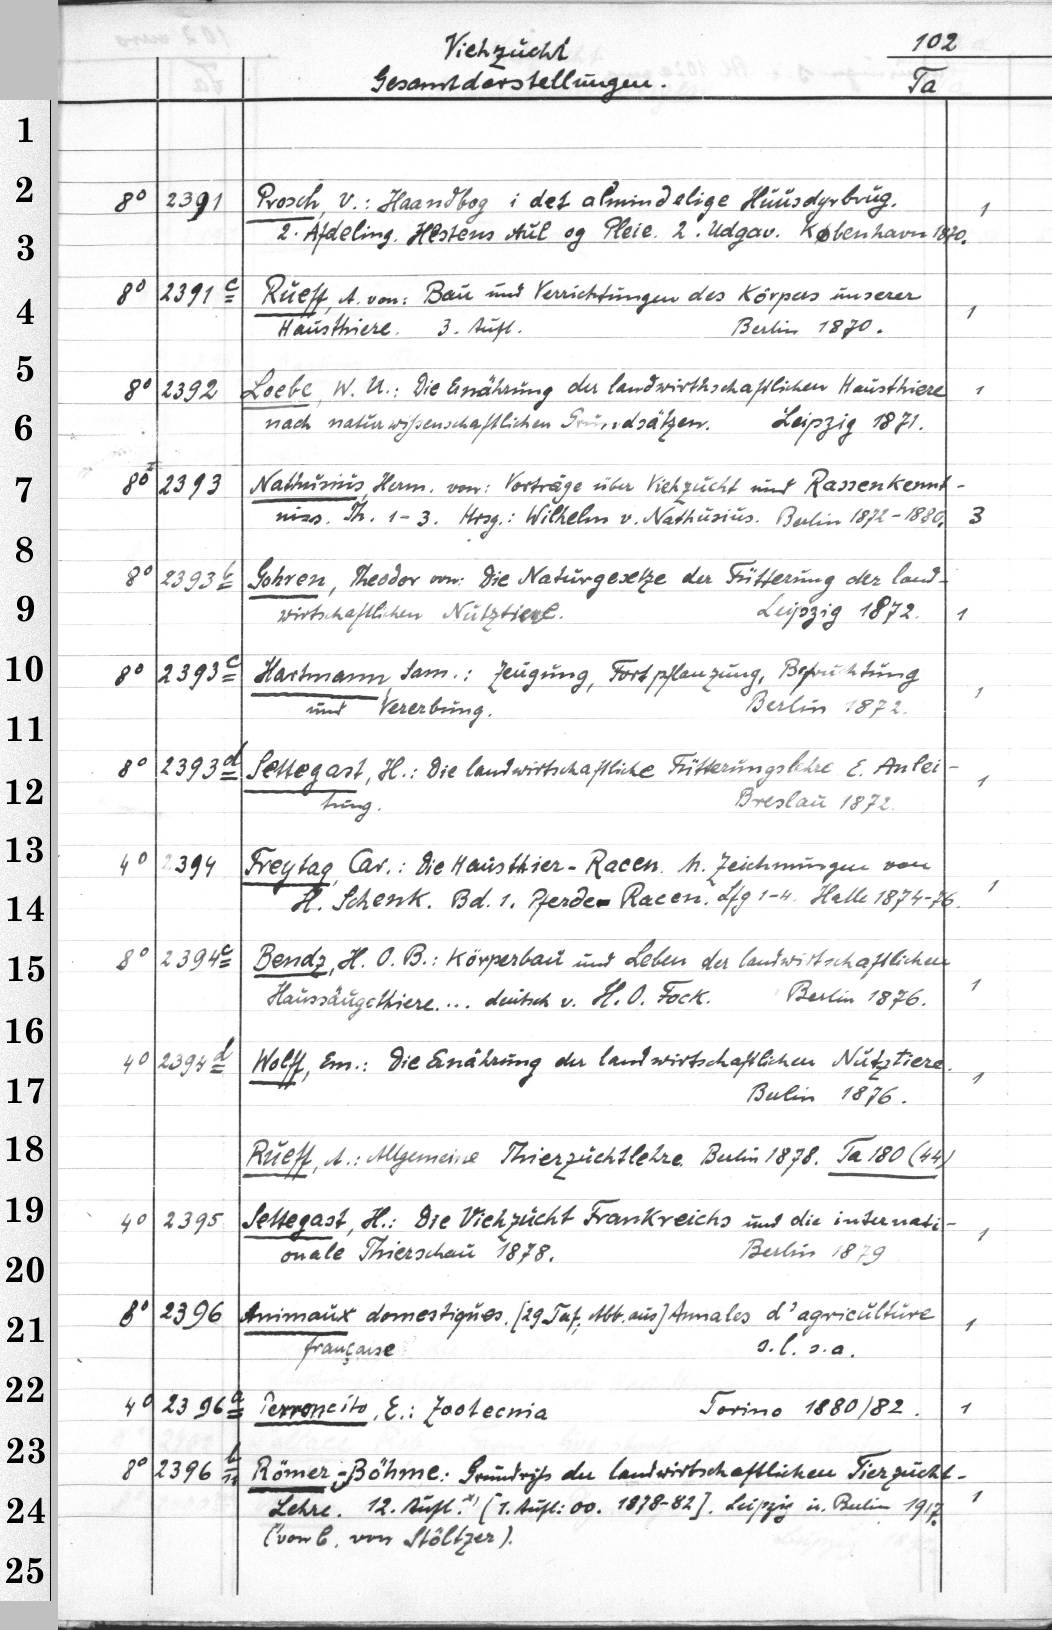 Viehzucht 102
Gesamtdarstellungen. Ta
1
2 8° 2391 Prosch, V.: Haandbog i det almindelige Huusdyrbrug. 1
3 2. Afdeling. Hestens Avl og Pleie. 2. Udgav. København 1870.
4 8° 2391 c Rueff, A. von: Bau und Verrichtungen des Körpers unserer 1
Hausthiere. 3. Aufl. Berlin 1870.
5 8° 2392 Loebe, W. U.: Die Ernährung der landwirthschaftlichen Hausthiere 1
6 nach naturwissenschaftlichen Grundsätzen. Leipzig 1871.
7 8° 2393 Nathusius, Herm. von: Vorträge über Viehzucht und Rassenkennt-
niss. Th. 1-3. Hrsg.: Wilhelm v. Nathusius. Berlin 1872-1880. 3
8 8° 2393 b Gohren, Theodor von: Die Naturgesetze der Fütterung der land-
9 wirtschaftlichen Nutztiere. Leipzig 1872. 1
10 8° 2393 c Hartmann Sam.: Zeugung, Fortpflanzung, Befruchtung 1
11 und Vererbung. Berlin 1872.
12 8° 2393 d Settegast, H.: Die landwirtschaftliche Fütterungslehre E. Anlei- 1
tung. Breslau 1872.
13 4° 2394 Freytag, Car.: Die Hausthier-Racen. M. Zeichnungen von 1
14 H. Schenk. Bd. 1. Pferde-Racen. Lfg 1-4. Halle 1874-76.
15 8° 2394 c Bendz, H. O. B.: Körperbau und Leben der landwirtschaftlichen 1
Haussäugethiere... deutsch v. H. O. Fock. Berlin 1876.
16 4° 2394 d Wolff, Em.: Die Ernährung der landwirtschaftlichen Nutztiere. 1
17 Berlin 1876.
18 Rueff, A.: Allgemeine Thierzuchtlehre. Berlin 1878. Ta 180 (44)
19 4° 2395 Settegast, H.: Die Viehzucht Frankreichs und die internati- 1
20 onale Thierschau 1878. Berlin 1879
21 8° 2396 Animaux domestiques. [29 Taf. Abb. aus] Annales d'agriculture 1
française s.l. s.a.
22 4° 2396 a Perroncito, E.: Zootecnia Torino 1880/82. 1
23 8° 2396 b Römer-Böhme: Grundriss der landwirtschaftlichen Tierzucht-
24 Lehre. 12. Aufl. x) [1. Aufl: oo. 1878-82]. Leipzig u. Berlin 1917. 1
25 von Stöltzer).